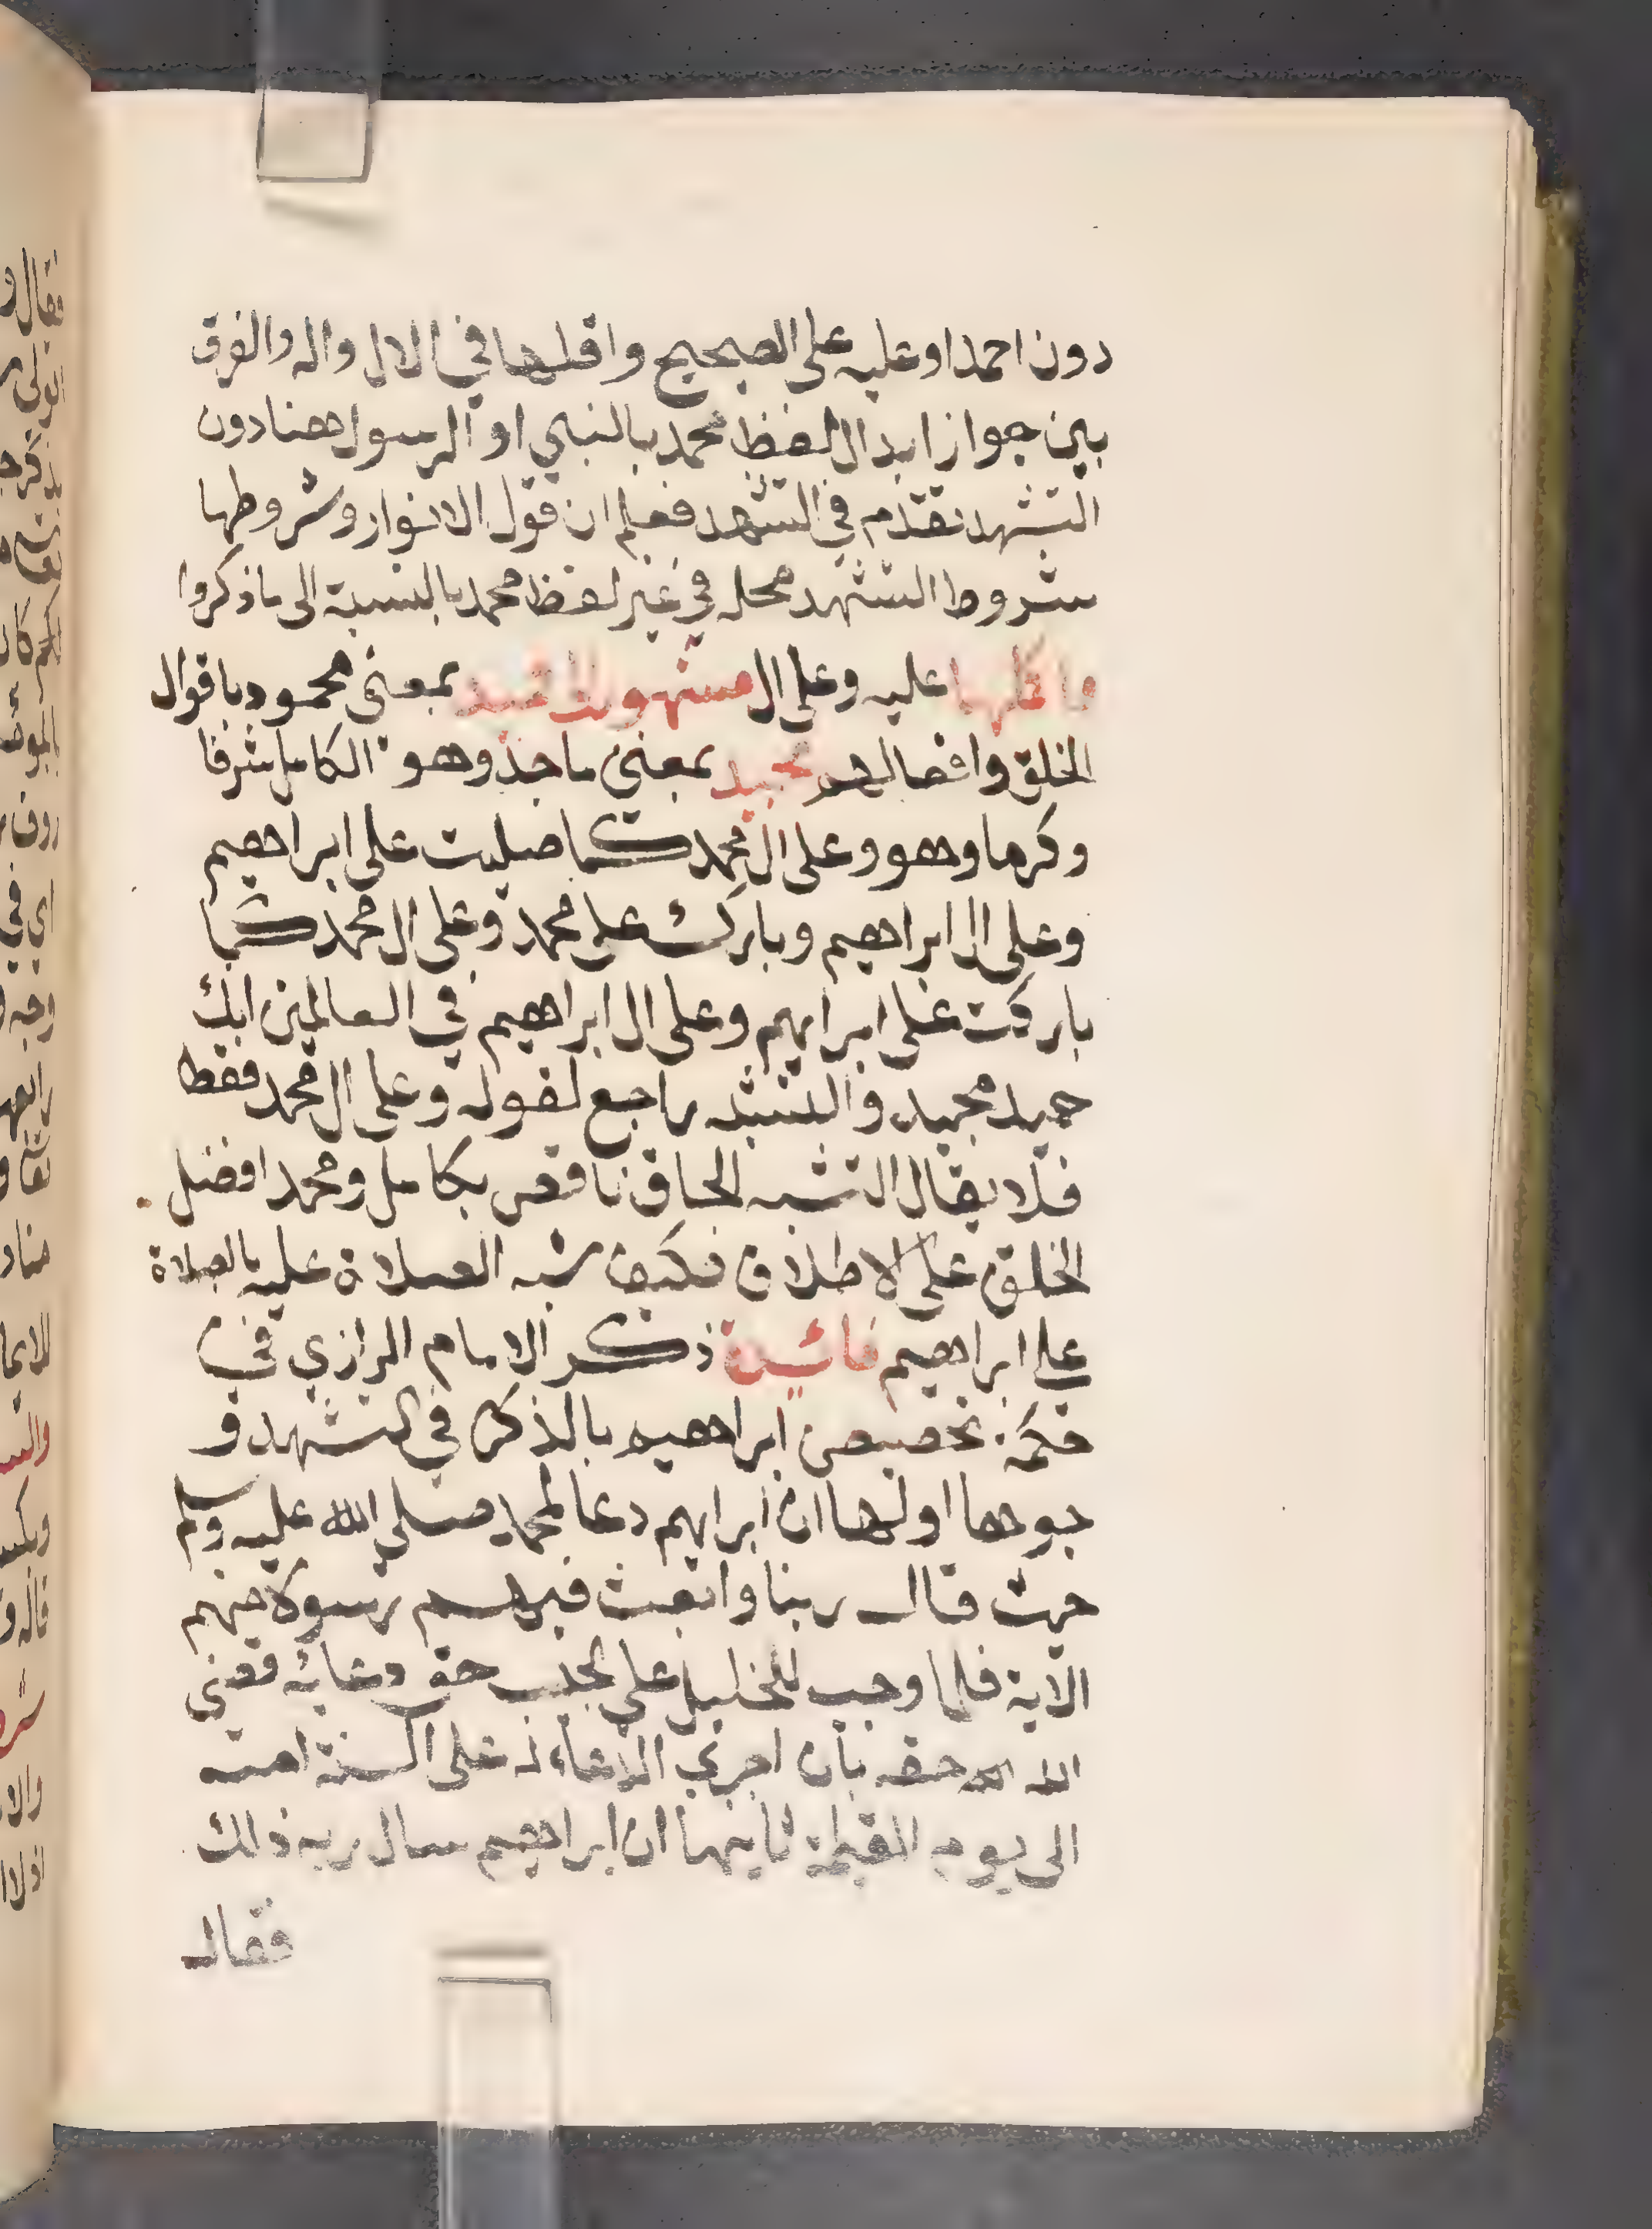 دون احمد او عليه على الصحيح واقلها في الال واله والفرق
بين جواز ابدال لفظ محمد بالنبي او الرسول هنا دون
التشهد تقدم في التشهد فعلم ان قول الانوار وشروطها
شروط التشهد محله في غير لفظ محمد بالنسبة الى ما ذكروا
عليه وعلى ال مشهور بمعنى محمود باقوال
الخلق وافعالهم مجيد بمعنى ماجد وهو الكامل شرفا
وكرما وهو وعلى ال محمد كما صليت على ابراهيم
وعلى ال ابراهيم وبارك على محمد وعلى ال محمد كما
باركت على ابراهيم وعلى ال ابراهيم في العالمين انك
حميد مجيد والتشبه راجع لقوله وعلى ال محمد فقط
فلا يقال التشبه الحاق ناقص بكامل ومحمد افضل
الخلق على الاطلاق فكيف شبه الصلاة عليه بالصلاة
على ابراهيم فائدة ذكر الامام الرازي في
حكمة تخصيص ابراهيم بالذكر في التشهد و
جوها اولها ان ابراهيم دعا لمحمد صلى الله عليه وسلم
حيث قال ربنا وابعث فيهم رسولا منهم
الاية فلما وجب للخليل على الحبيب حق دعائه فقضى
الله حقه بان اجرى الدعاء له على السنة امته
الى يوم القيمة ثانيها ان ابراهيم سال ربه ذلك
فقال